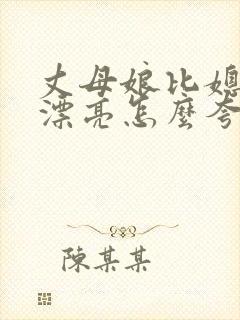 丈母娘比媳
漂亮怎麼夸
陳某某